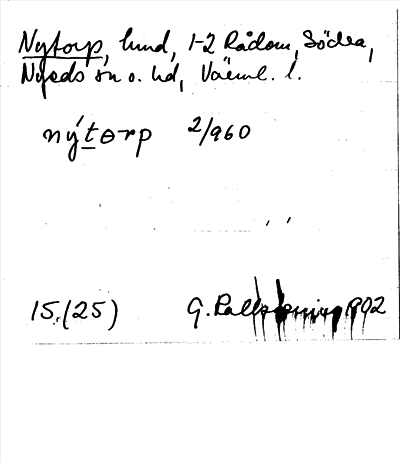 Nytorp, lund, 1-2 Rådom, Södra,
Nyeds sn o. hd, Värml. l.
nýtorp 2/960
15.(25) G. 1902